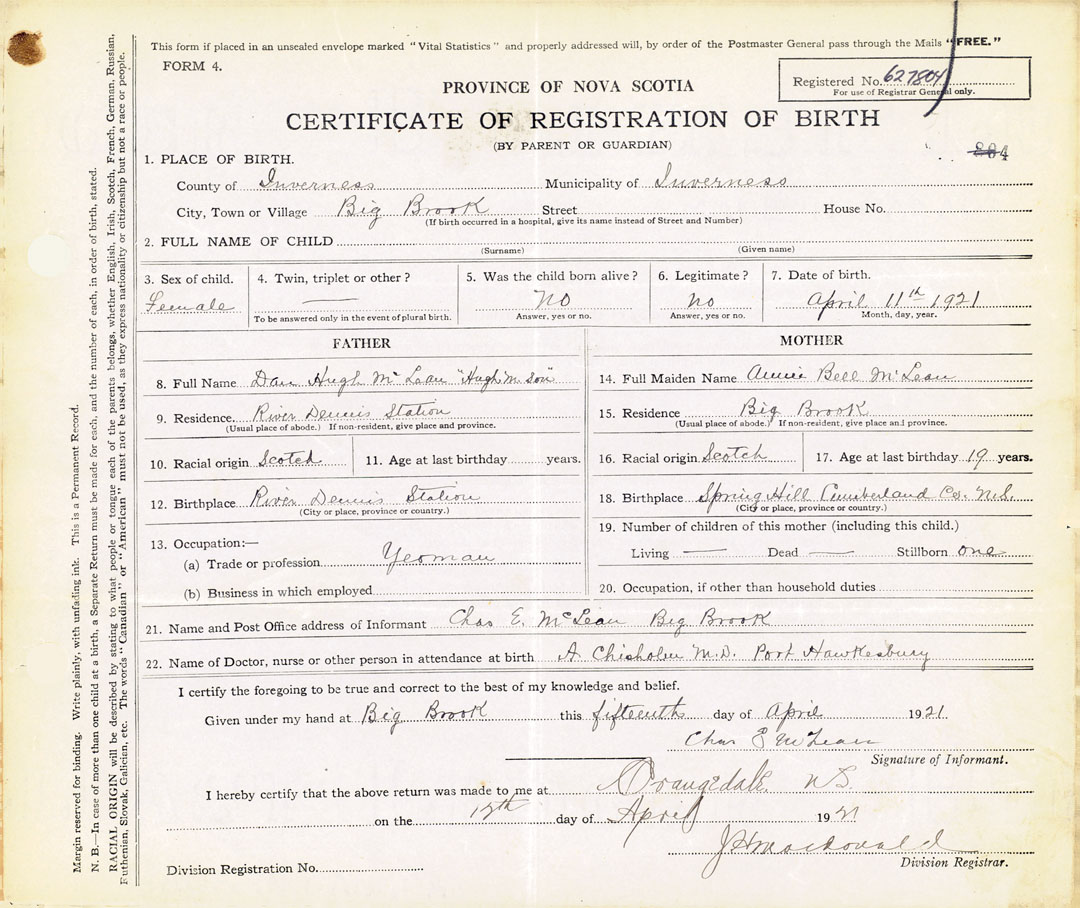 This form if placed in an unsealed envelope marked "Vital Statistics" and properly addressed will, by order of the Postmaster General pass through the Mails "FREE."
FORM 4.
Registered No. 627804
For use of Registrar General only.
PROVINCE OF NOVA SCOTIA
CERTIFICATE OF REGISTRATION OF BIRTH
(BY PARENT OR GUARDIAN)
804
1. PLACE OF BIRTH.
County of Inverness Municipality of Inverness
City, Town or Village Big Brook Street House No.
(If birth occurred in a hospital, give its name instead of Street and Number)
2. FULL NAME OF CHILD
(Surname) (Given name)
3. Sex of child. 4. Twin, triplet or other? 5. Was the child born alive? 6. Legitimate? 7. Date of birth.
Female — No no April 11th 1921
To be answered only in the event of plural birth. Answer, yes or no. Answer, yes or no. Month, day, year.
FATHER
8. Full Name Dan Hugh McLean "Hugh M. Son"
9. Residence River Dennis Station
(Usual place of abode.) If non-resident, give place and province.
10. Racial origin Scotch 11. Age at last birthday years.
12. Birthplace River Dennis Station
(City or place, province or country.)
13. Occupation:—
(a) Trade or profession Yeoman
(b) Business in which employed
MOTHER
14. Full Maiden Name Annie Bell McLean
15. Residence Big Brook
(Usual place of abode.) If non-resident, give place and province.
16. Racial origin Scotch 17. Age at last birthday 19 years.
18. Birthplace Spring Hill Cumberland Co. N.S.
(City or place, province or country.)
19. Number of children of this mother (including this child.)
Living — Dead — Stillborn one
20. Occupation, if other than household duties
21. Name and Post Office address of Informant Chas E. McLean Big Brook
22. Name of Doctor, nurse or other person in attendance at birth A Chisholm M.D. Port Hawkesbury
I certify the foregoing to be true and correct to the best of my knowledge and belief.
Given under my hand at Big Brook this fifteenth day of April 1921.
Chas E McLean
Signature of Informant.
I hereby certify that the above return was made to me at Orangedale, NS.
on the day of April 1921
JHMacdonald
Division Registrar.
Division Registration No.
Margin reserved for binding. Write plainly, with unfading ink. This is a Permanent Record.
N. B.—In case of more than one child at a birth, a Separate Return must be made for each, and the number of each, in order of birth, stated.
RACIAL ORIGIN will be described by stating to what people or tongue each of the parents belongs, whether English, Irish, Scotch, French, German, Russian,
Ruthenian, Slovak, Galician, etc. The words "Canadian" or "American" must not be used, as they express nationality or citizenship but not a race or people.